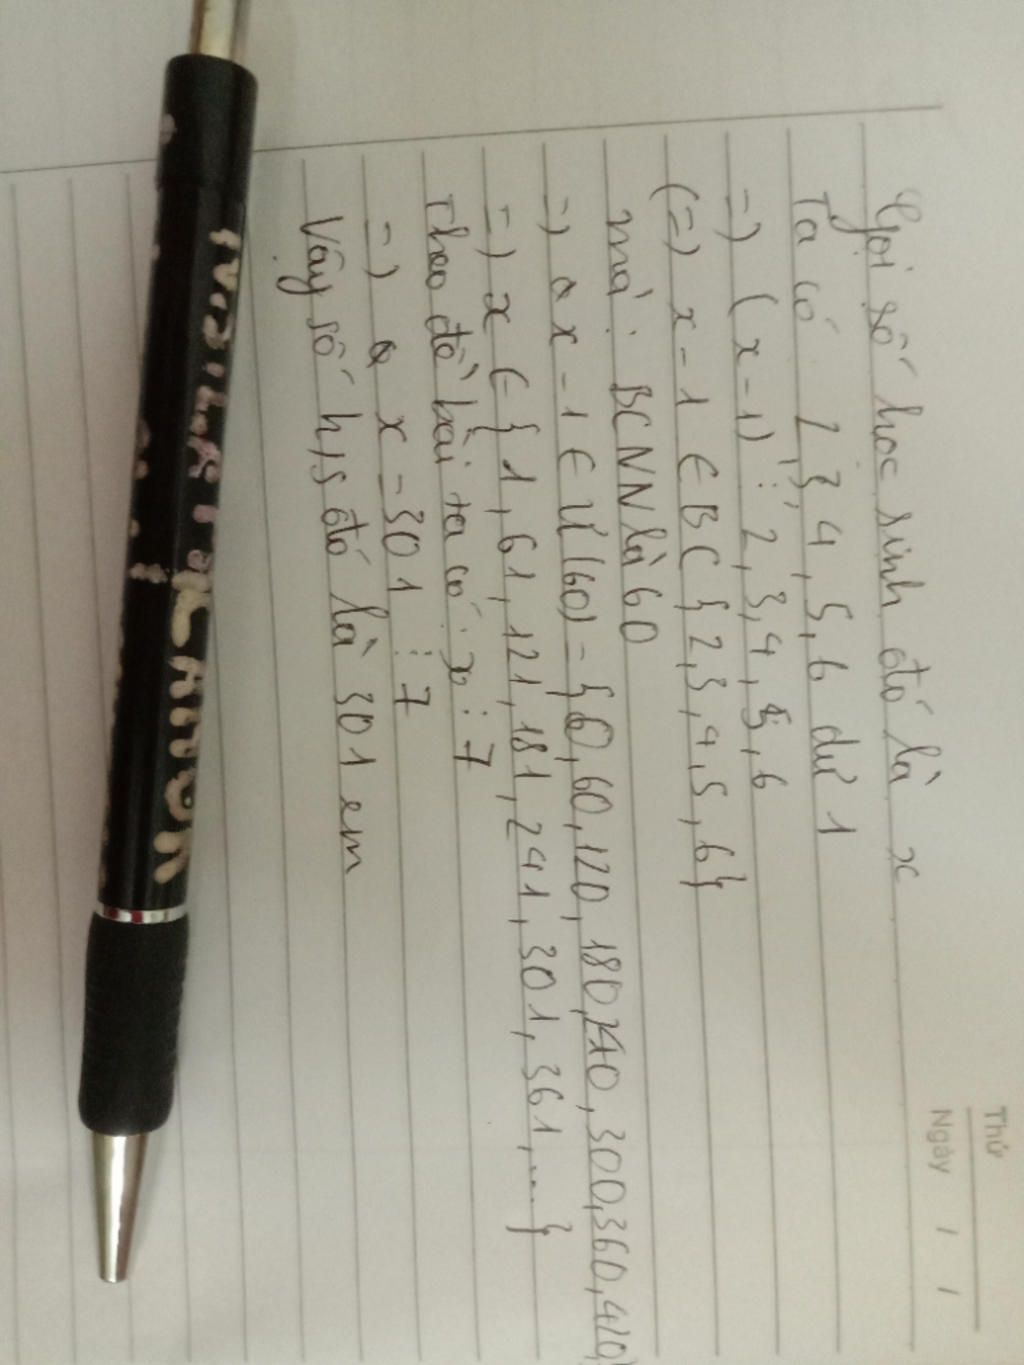 Thứ
Ngày / /
Gọi số học sinh đó là x
Ta có 2, 3, 4, 5, 6 dư 1
=) (x-1) ⋮ 2, 3, 4, 5, 6
(=) x - 1 ∈ BC {2, 3, 4, 5, 6}
mà : BCNN là 60
=) x - 1 ∈ Ư (60) = {0, 60, 120, 180, 240, 300, 360, 420
=) x ∈ {1, 61, 121, 181, 241, 301, 361, ...}
Theo đề bài ta có : x ⋮ 7
=) x = 301 ⋮ 7
Vậy số h/s đó là 301 em